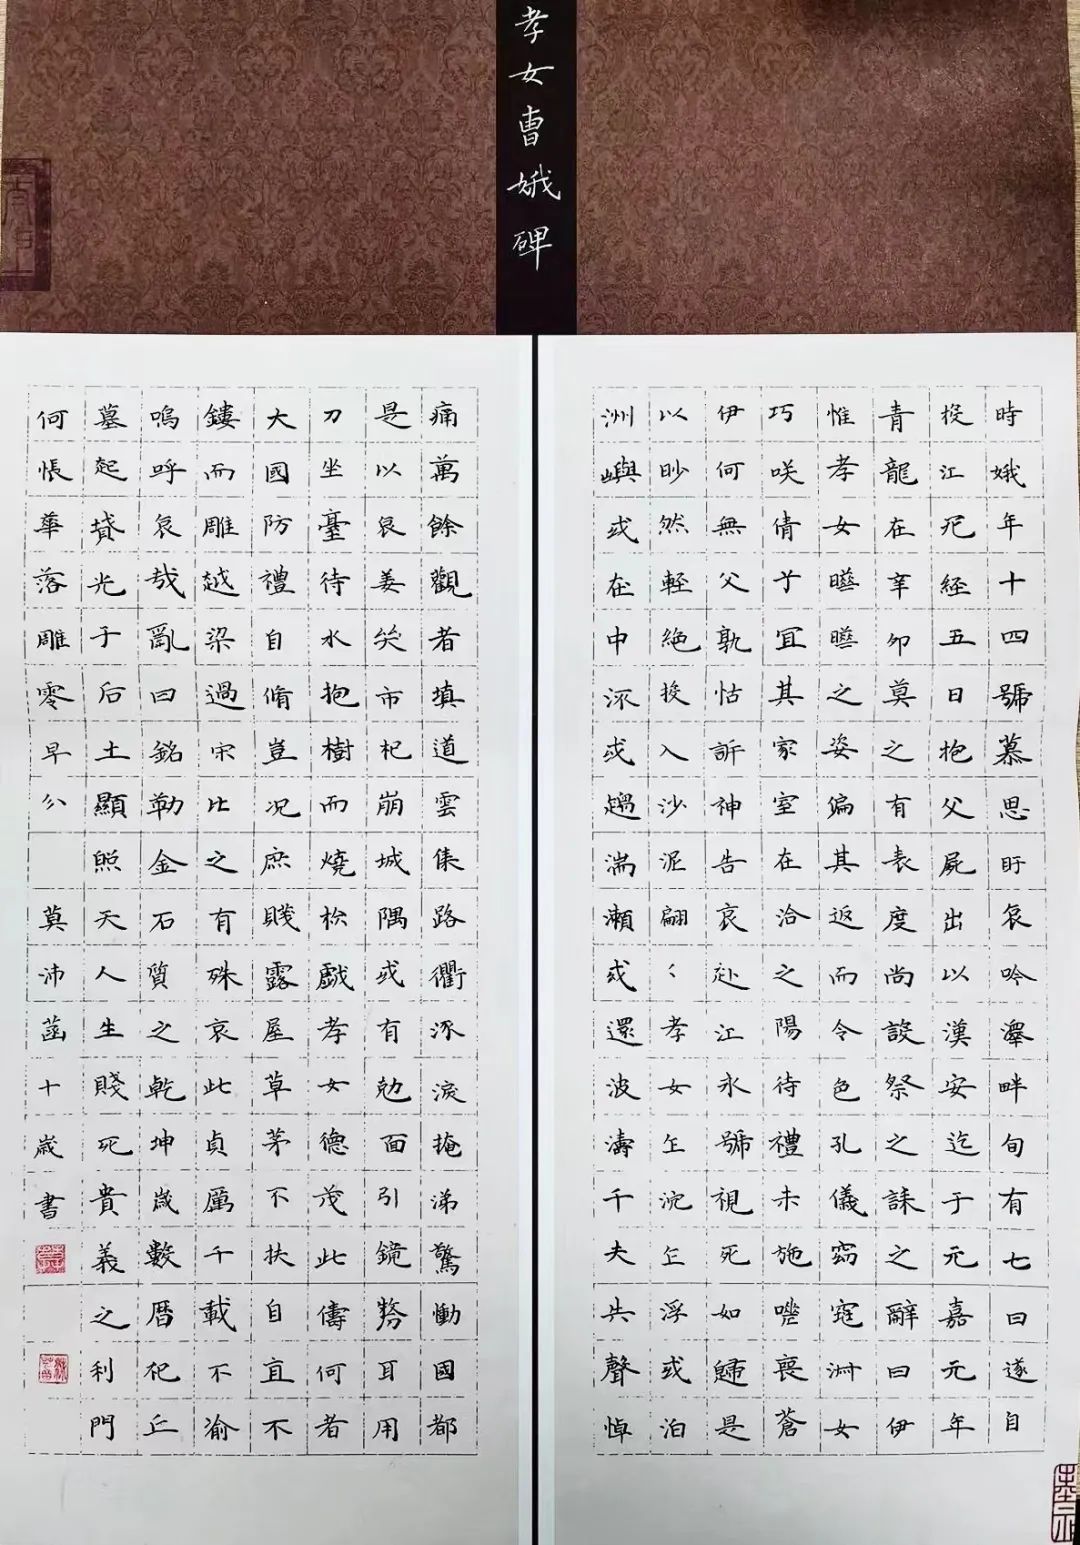 孝女曹娥碑
時娥年十四號慕思盱哀吟澤畔旬有七日遂自
投江死經五日抱父屍出以漢安迄于元嘉元年
青龍在辛卯莫之有表度尚設祭之誄之辭曰伊
惟孝女曄曄之姿偏其返而令色孔儀窈窕淑女
巧咲倩兮宜其家室在洽之陽待禮未施嗟喪蒼
伊何無父孰怙訴神告哀赴江永號視死如歸是
以眇然輕絕投入沙泥翩〻孝女乍沉乍浮或泊
洲嶼或在中流或趨湍瀨或還波濤千夫共聲悼
痛萬餘觀者填道雲集路衢流淚掩涕驚慟國都
是以哀姜哭市杞崩城隅或有勊面引鏡剺耳用
刀坐臺待水抱樹而燒於戲孝女德茂此儔何者
大國防禮自脩豈況庶賤露屋草茅不扶自直不
鏤而雕越梁過宋比之有殊哀此貞厲千載不渝
嗚呼哀哉亂曰銘勒金石質之乾坤歲數曆祀丘
墓起墳光于后土顯照天人生賤死貴義之利門
何悵華落雕零早分
莫沛菡十歲書